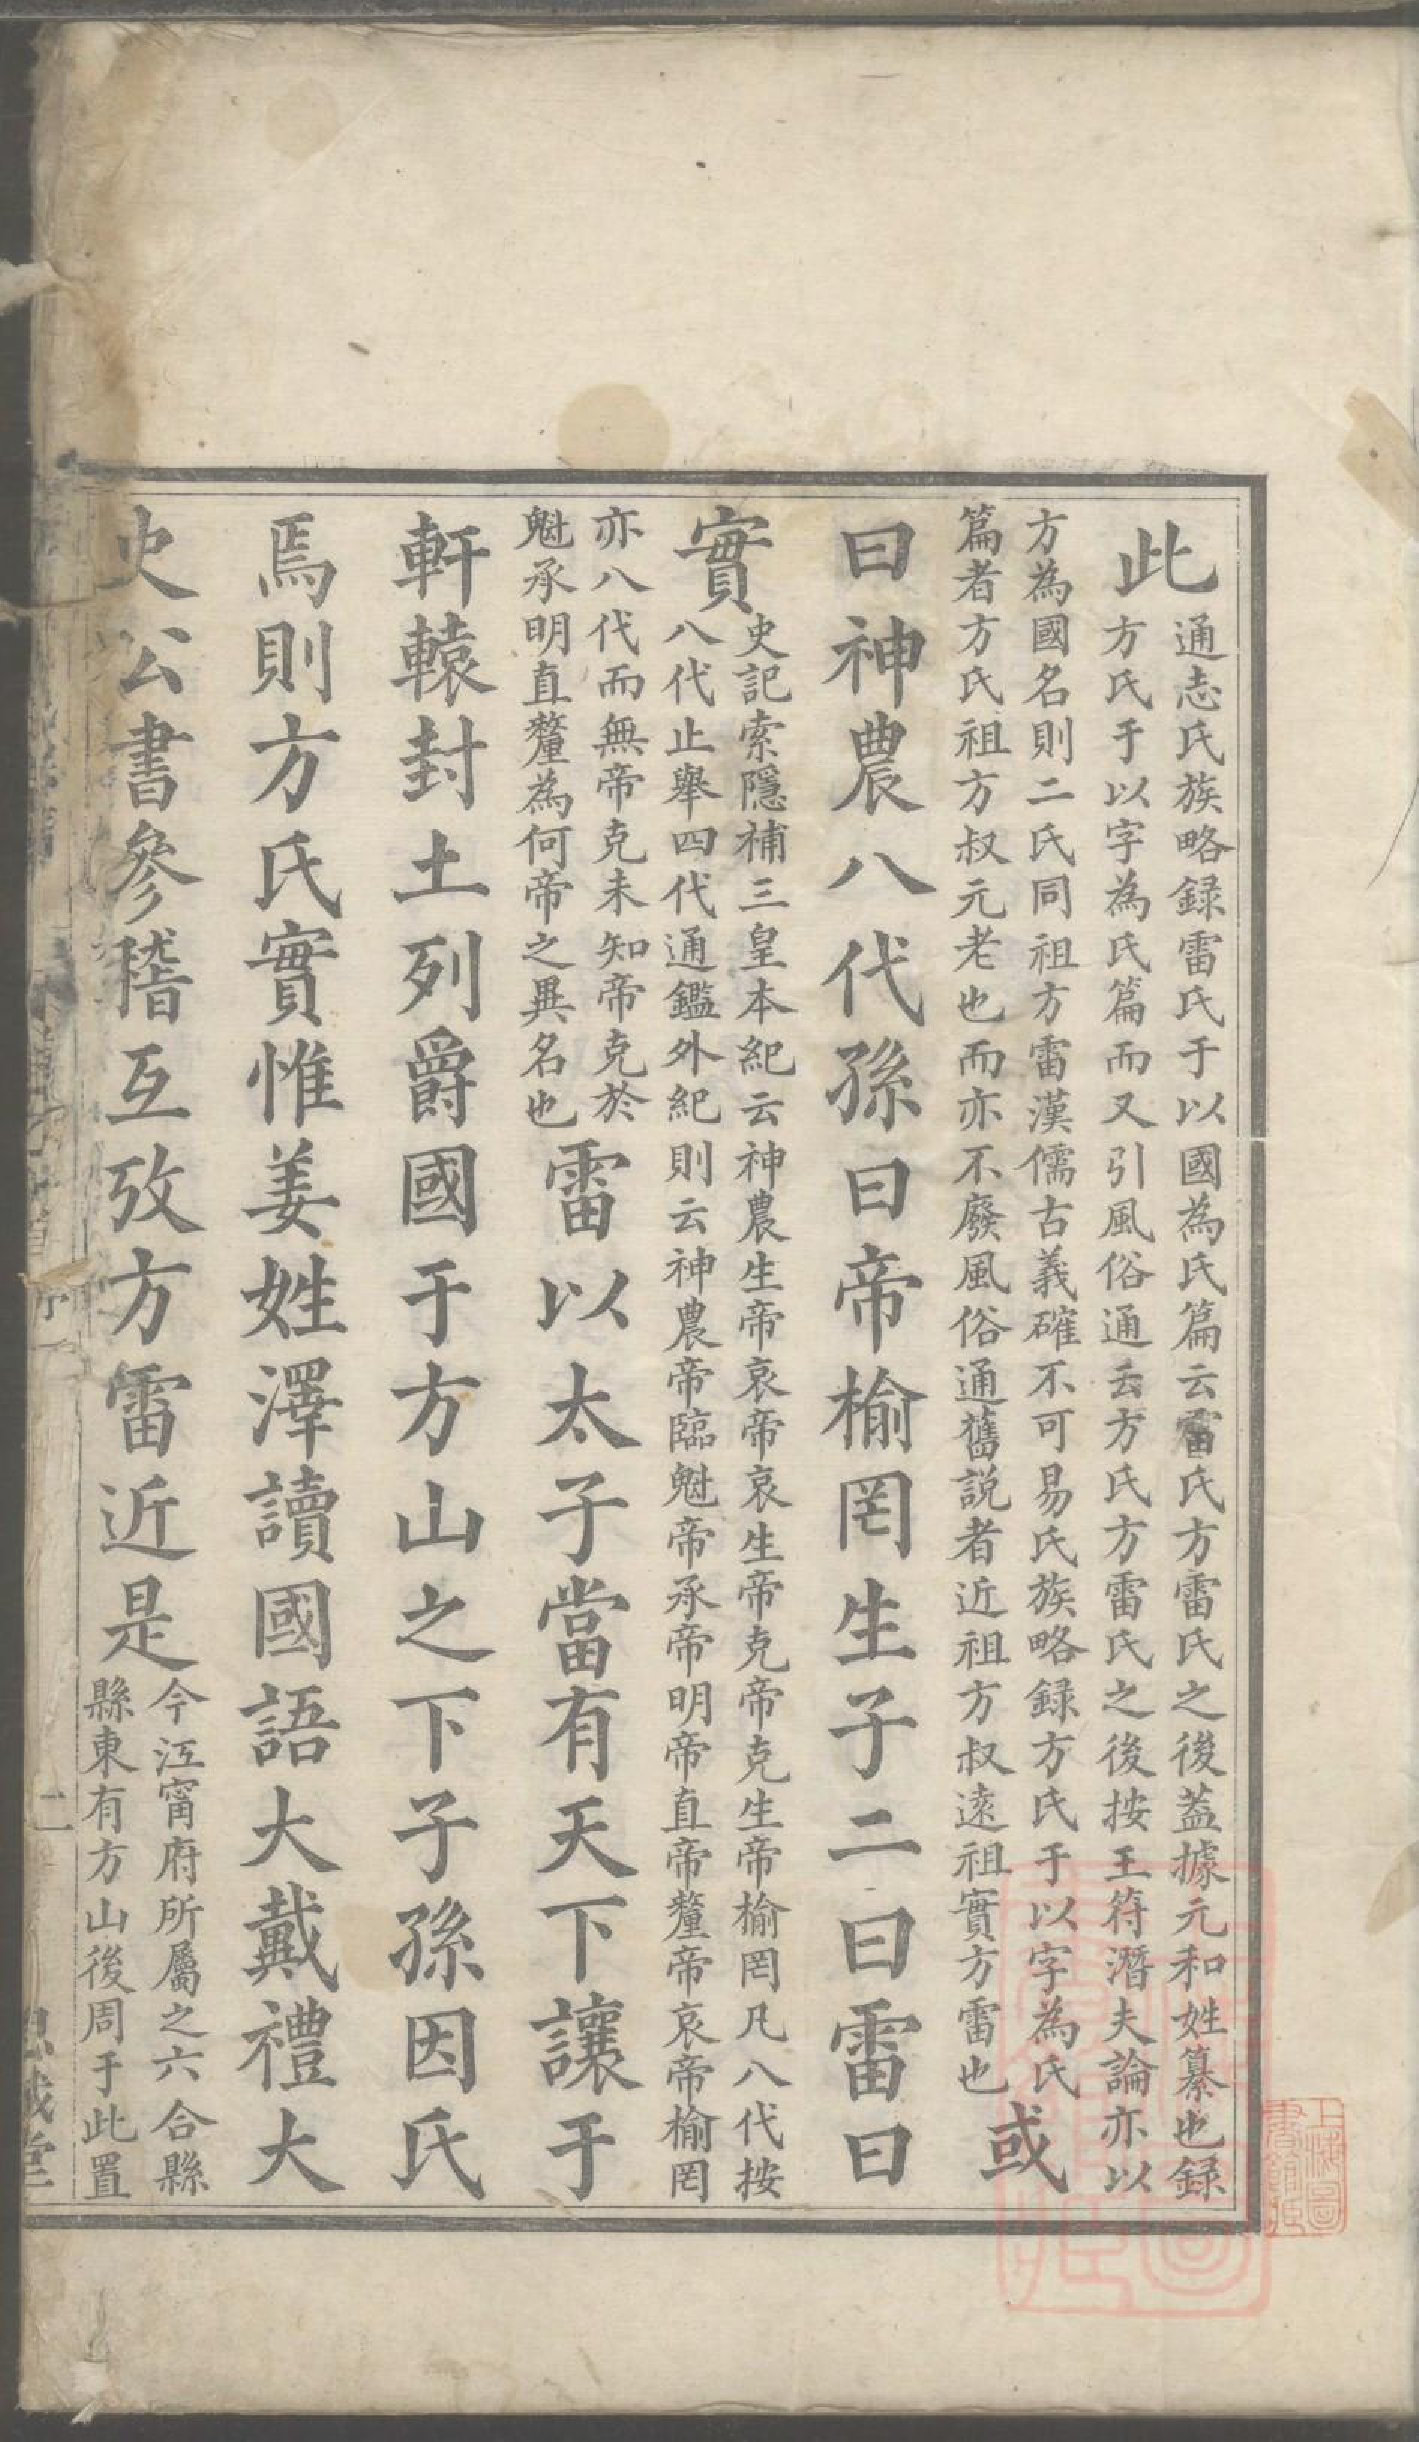 此通志氏族略録雷氏于以國為氏篇云雷氏方雷氏之後蓋據元和姓纂也録
方氏于以字為氏篇而又引風俗通云方氏方雷氏之後按王符潛夫論亦以
方為國名則二氏同祖方雷漢儒古義確不可易氏族略録方氏于以字為氏
篇者方氏祖方叔元老也而亦不廢風俗通舊説者近祖方叔遠祖實方雷也或
曰神農八代孫曰帝榆罔生子二曰雷曰
實史記索隱補三皇本紀云神農生帝哀帝哀生帝克帝克生帝榆罔凡八代按
八代止舉四代通鑑外紀則云神農帝臨魁帝承帝明帝直帝釐帝哀帝榆罔
亦八代而無帝克未知帝克於
魁承明直釐為何帝之異名也雷以太子當有天下讓于
軒轅封土列爵國于方山之下子孫因氏
焉則方氏實惟姜姓澤讀國語大戴禮大
史公書參稽互攷方雷近是今江甯府所屬之六合縣
縣東有方山後周于此置
二
上海圖書館藏